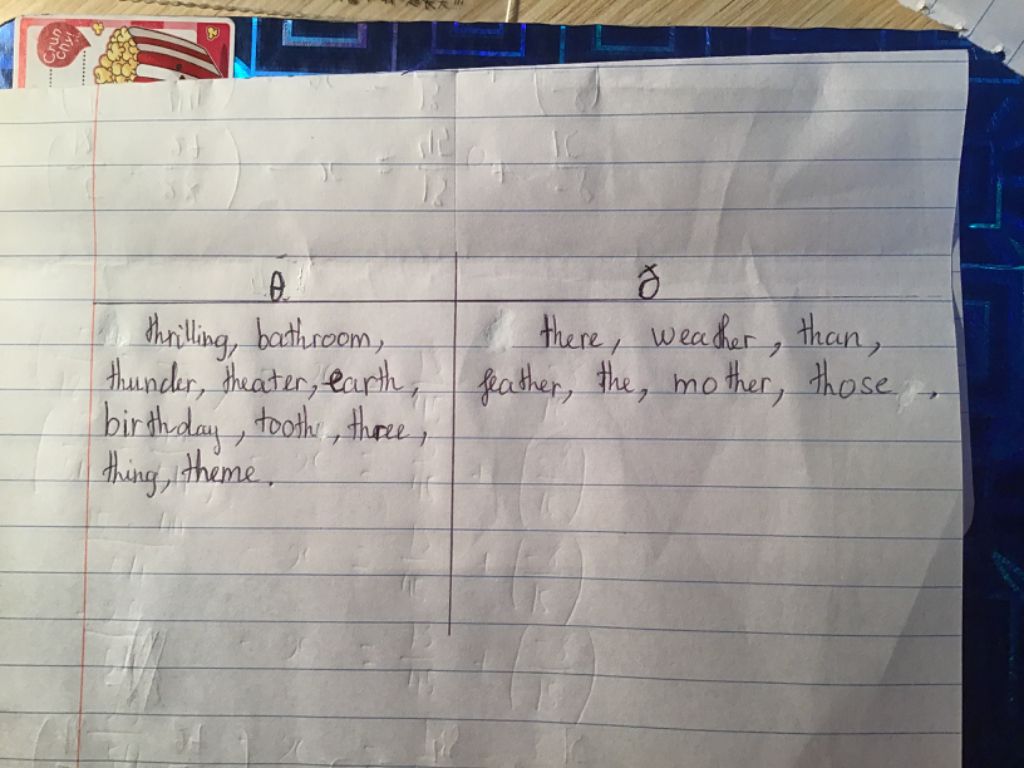 Crun
chy!
θ
ð
thrilling, bathroom,
thunder, theater, earth,
birthday, tooth, three,
thing, theme.
there, weather, than,
feather, the, mother, those.